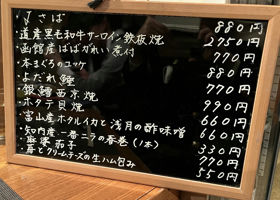 〆さば 880円
・道産黒毛和牛サーロイン鉄板焼 2750円
・函館産ばばがれい煮付 770円
・本まぐろのユッケ 880円
・よだれ鰹 880円
・銀鱈西京焼 770円
・ホタテ貝焼 990円
・富山産ホタルイカと浅月の酢味噌 660円
・知内産一番ニラの春巻(1本) 330円
・麻婆茄子 770円
・苺とクリームチーズの生ハム包み 550円